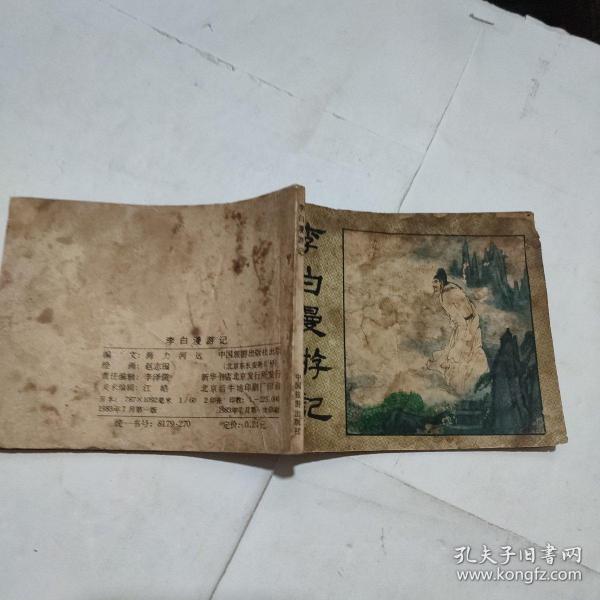 李白漫游记
李白漫游记
编 文：
中国旅游出版社出版
绘 画：赵志田
（北京东长安街6号）
责任编辑：李泽儒
新华书店北京发行所发行
美术编辑：江皓
北京丰
印刷
开本：787×1092毫米 1/60
印数：1—225,000
1983年7月第一版
统一书号：8179·270
定价：0.21元
李白漫游记
中国旅游出版社
孔夫子旧书网
www.kongfz.com